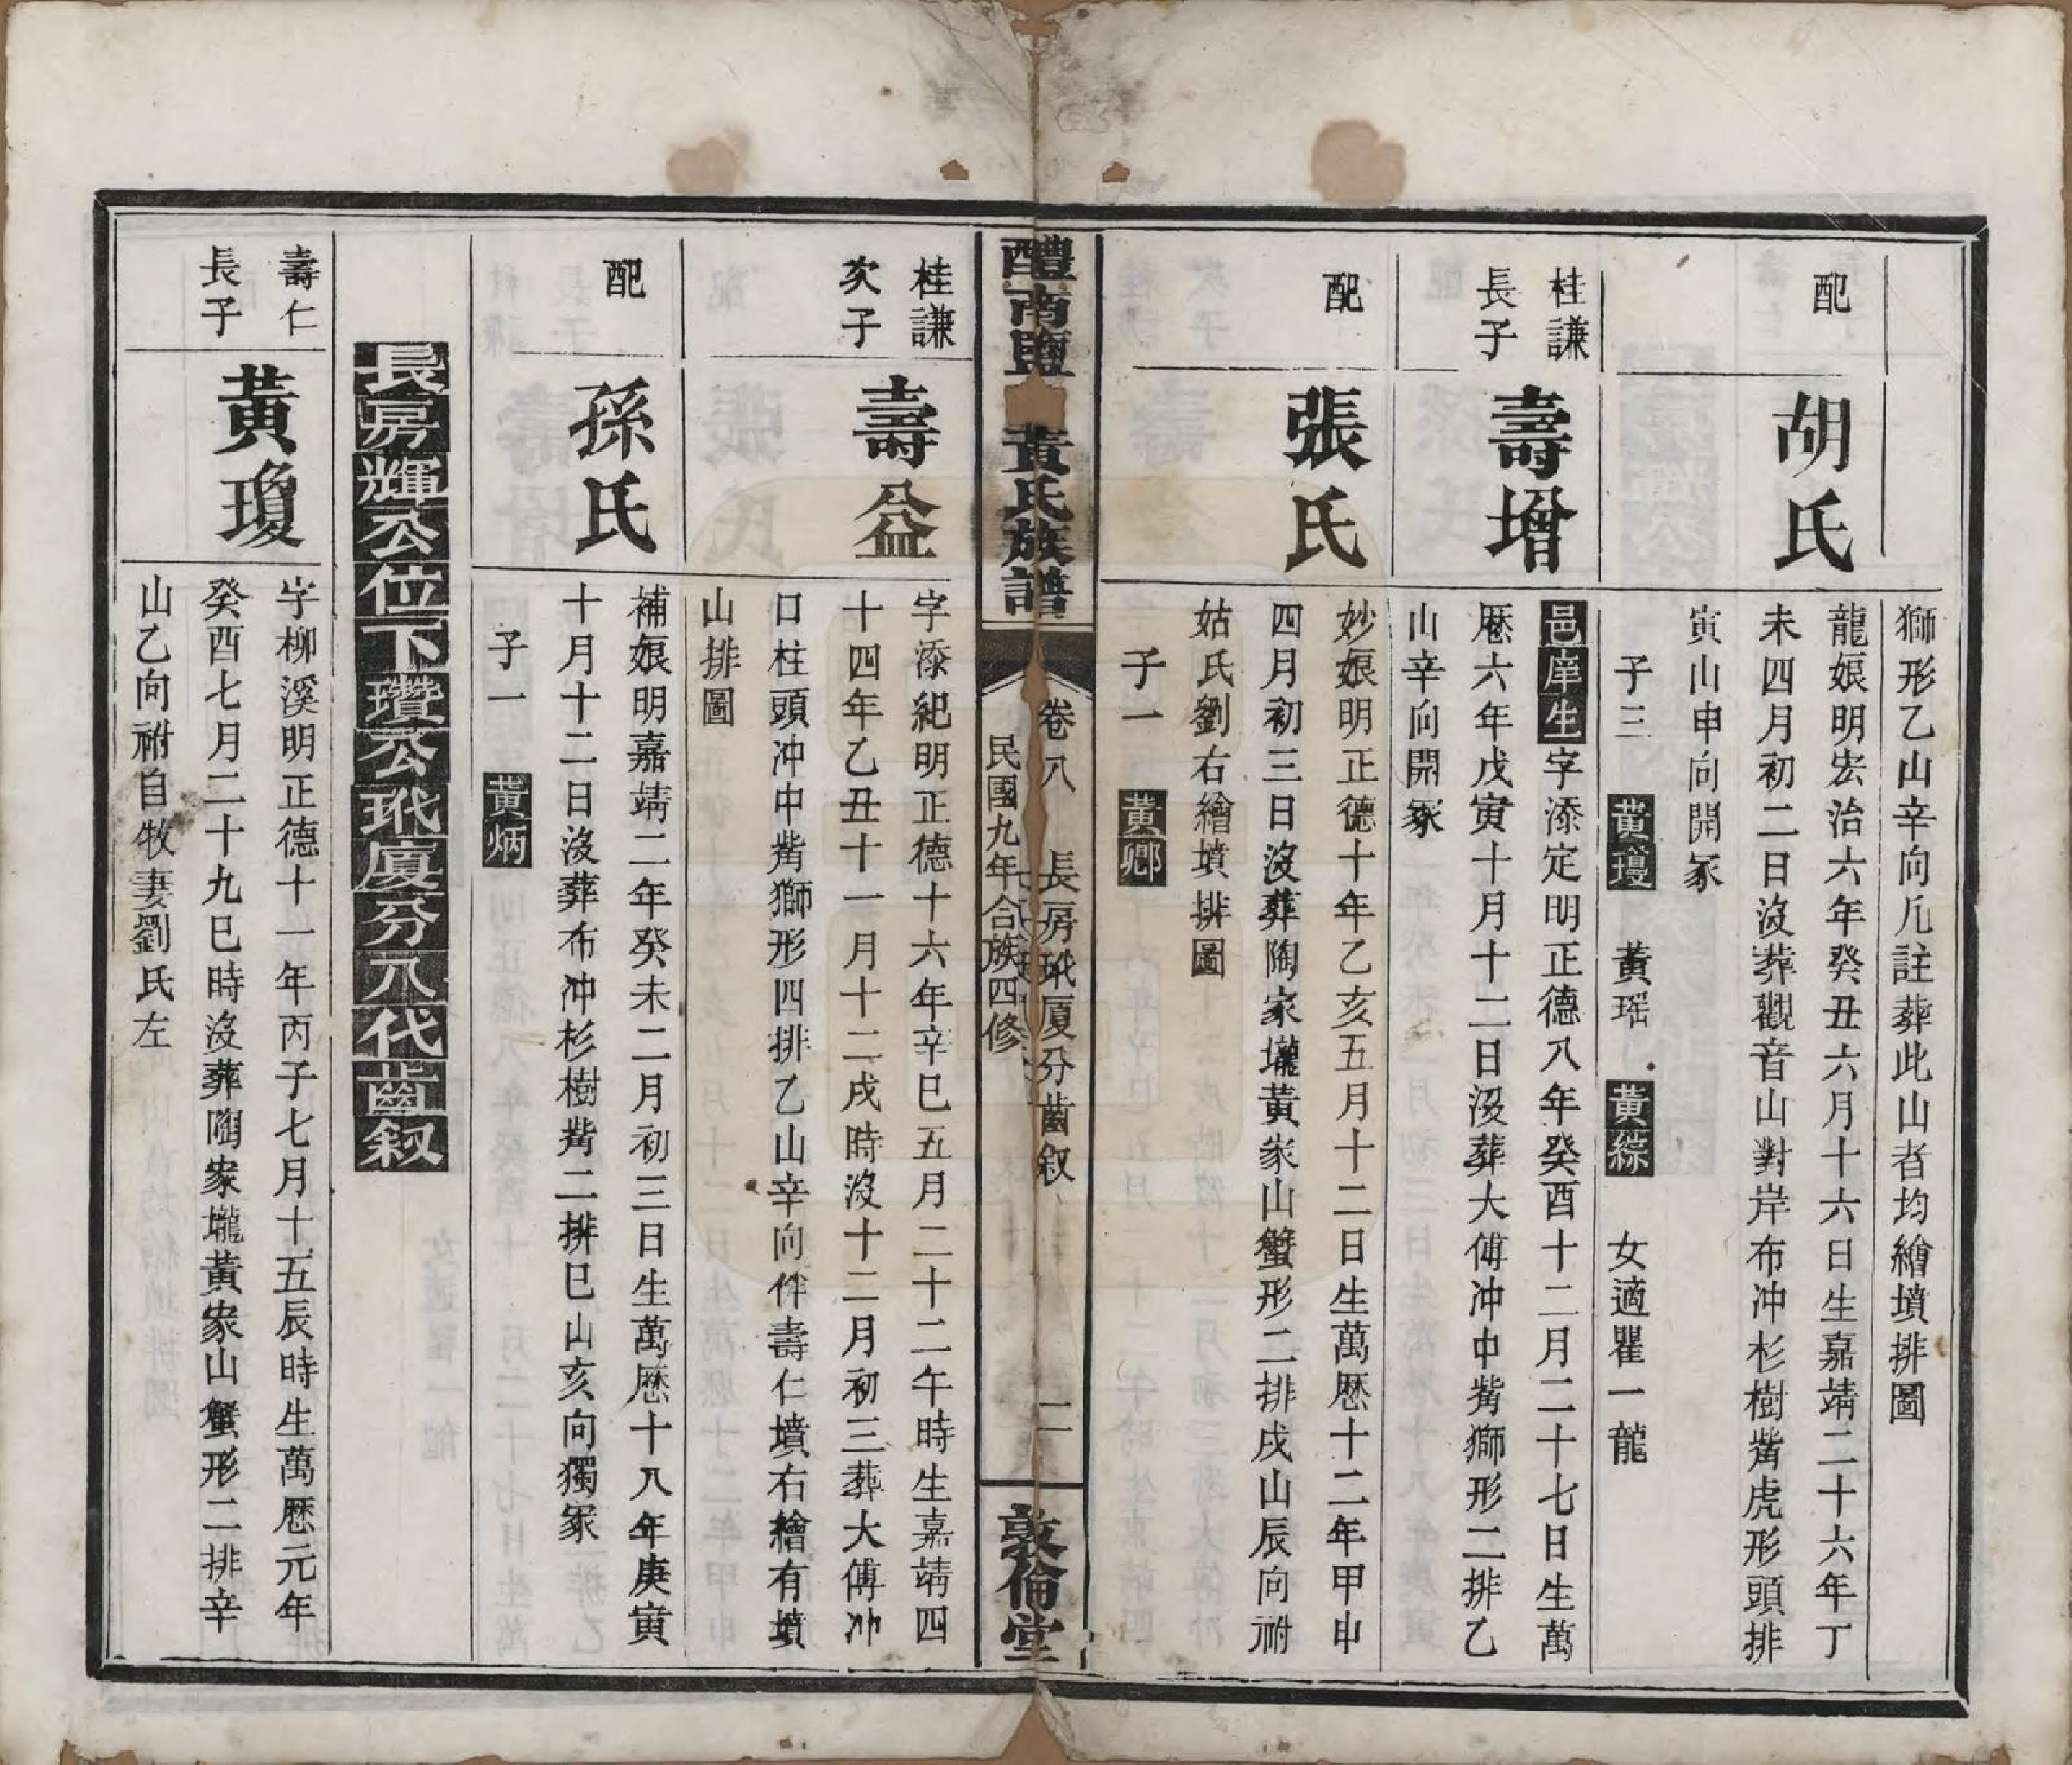 獅形乙山辛向凢註葬此山者均繪墳排圖
配
胡氏
龍娘明宏治六年癸丑六月十六日生嘉靖二十六年丁
未四月初二日沒葬觀音山對岸布冲杉樹嘴虎形頭排
寅山申向開冢
子三 黃瓊 黃瑶 黃綜 女適瞿一龍
桂謙
長子
壽增
邑庠生字添定明正德八年癸酉十二月二十七日生萬
厯六年戊寅十月十二日沒葬大傅冲中嘴獅形二排乙
山辛向開冢
配
張氏
妙娘明正德十年乙亥五月十二日生萬厯十二年甲申
四月初三日沒葬陶家壠黃家山蟹形二排戌山辰向祔
姑氏劉右繪墳排圖
子一 黃卿
醴南鹽 黃氏族譜
卷八 長房玳厦分齒叙 二
民國九年合族四修
敦倫堂
桂謙
次子
壽益
字添紀明正德十六年辛巳五月二十二午時生嘉靖四
十四年乙丑十一月十二戌時沒十二月初三葬大傅冲
口柱頭冲中嘴獅形四排乙山辛向伴壽仁墳右繪有墳
山排圖
配
孫氏
補娘明嘉靖二年癸未二月初三日生萬厯十八年庚寅
十月十二日沒葬布冲杉樹嘴二排巳山亥向獨冢
子一 黃炳
長房輝公位下瓚公玳厦分八代齒叙
壽仁
長子
黃瓊
字柳溪明正德十一年丙子七月十五辰時生萬厯元年
癸酉七月二十九巳時沒葬陶家壠黃家山蟹形二排辛
山乙向祔自牧妻劉氏左